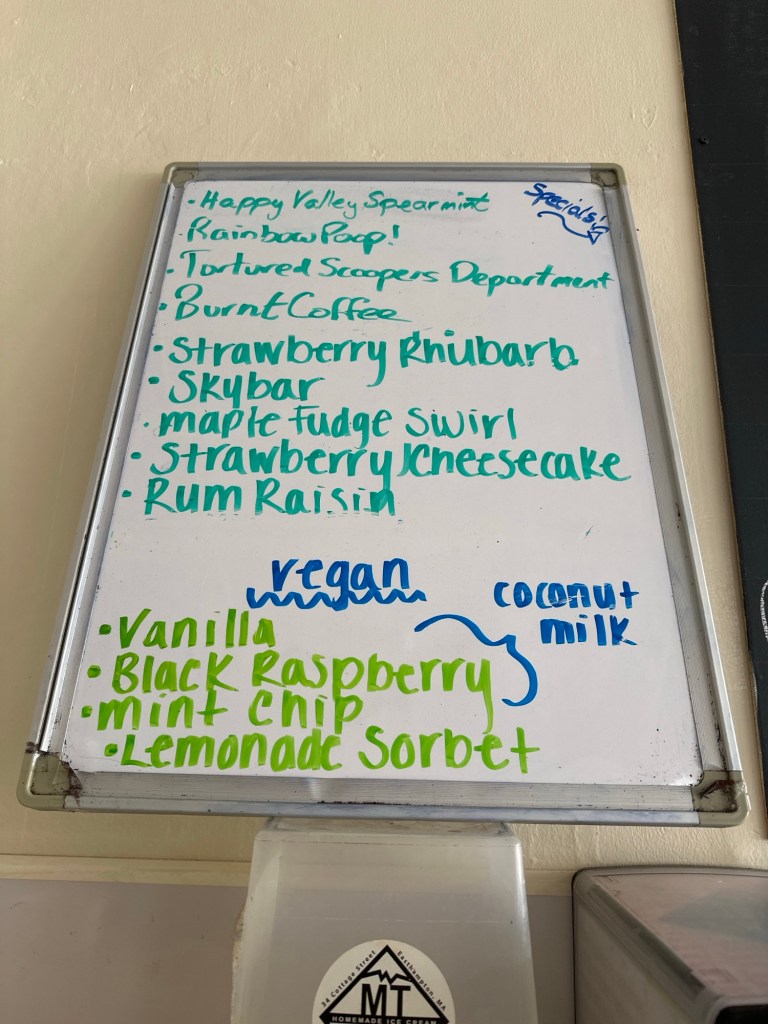 Specials!
· Happy Valley Spearmint
· Rainbow Poop!
· Tortured Scoopers Department
· Burnt Coffee
· Strawberry Rhiubarb
· Skybar
· maple Fudge Swirl
· Strawberry Cheesecake
· Rum Raisin
vegan
coconut
milk
· Vanilla
· Black Raspberry
· mint chip
· Lemonade Sorbet
34 Cottage Street
Easthampton, MA
MT
HOMEMADE ICE CREAM